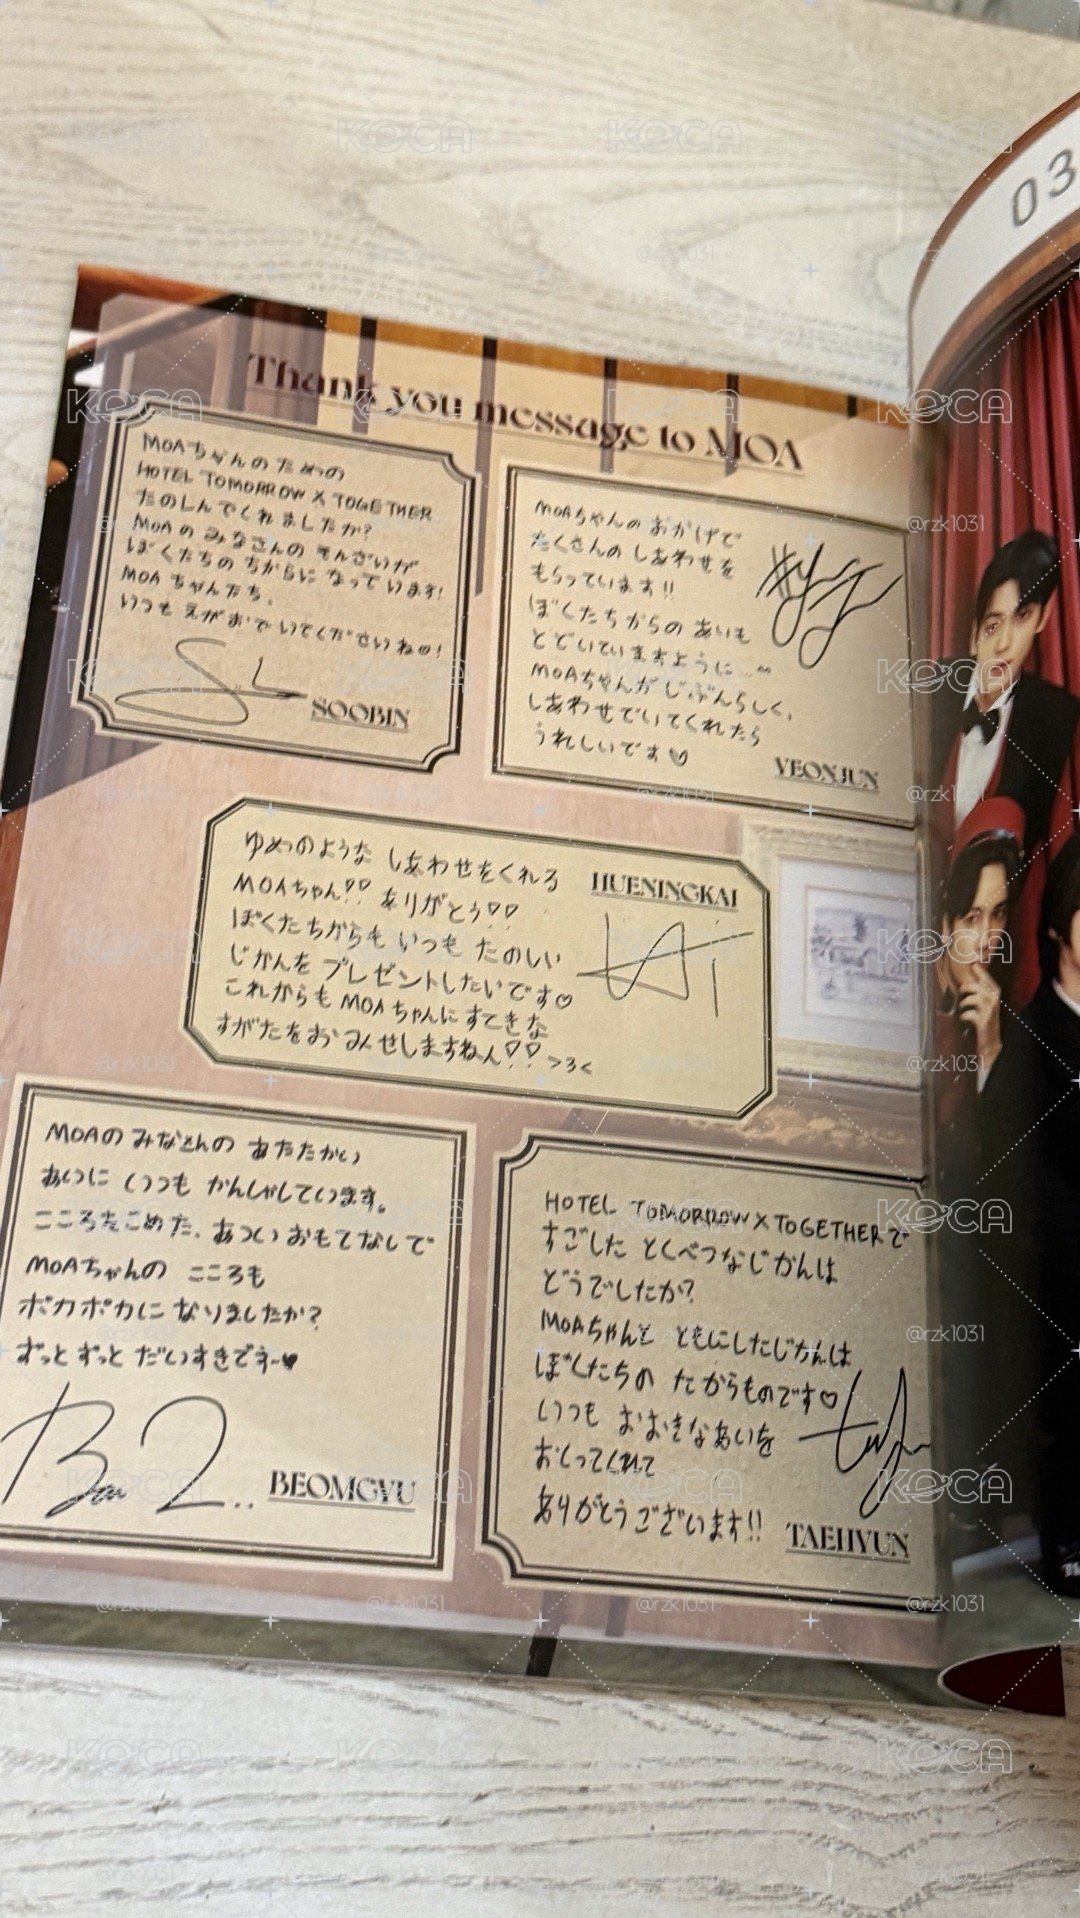 03
Thank you message to MOA
MOAちゃんのための
HOTEL TOMORROW X TOGETHER
たのしんでくれましたか?
MOAのみなさんのそんざいが
ぼくたちのちからになっています!
MOAちゃんたち、
いつもえがおでいてくださいね♡!
SOOBIN
MOAちゃんのおかげで
たくさんのしあわせを
もらっています!!
ぼくたちからのあいも
とどいていますように...
MOAちゃんがじぶんらしく、
しあわせでいてくれたら
うれしいです♡
YEONJUN
ゆめのような しあわせをくれる
MOAちゃん!! ありがとう!!
ぼくたちからも いつも たのしい
じかんを プレゼントしたいです♡
これからも MOAちゃんに すてきな
すがたをおみせしますねん!! >3<
HUENINGKAI
MOAのみなさんの あたたかい
あいに いつも かんしゃしています。
こころをこめた、あついおもてなしで
MOAちゃんの こころも
ポカポカに なりましたか?
ずっとずっと だいすきです~♥
BEOMGYU
HOTEL TOMORROW X TOGETHERで
すごした とくべつなじかんは
どうでしたか?
MOAちゃんと ともにしたじかんは
ぼくたちの たからものです♡
いつも おおきなあいを
おくってくれて
ありがとうございます!!
TAEHYUN
KOCA
@rzk1031